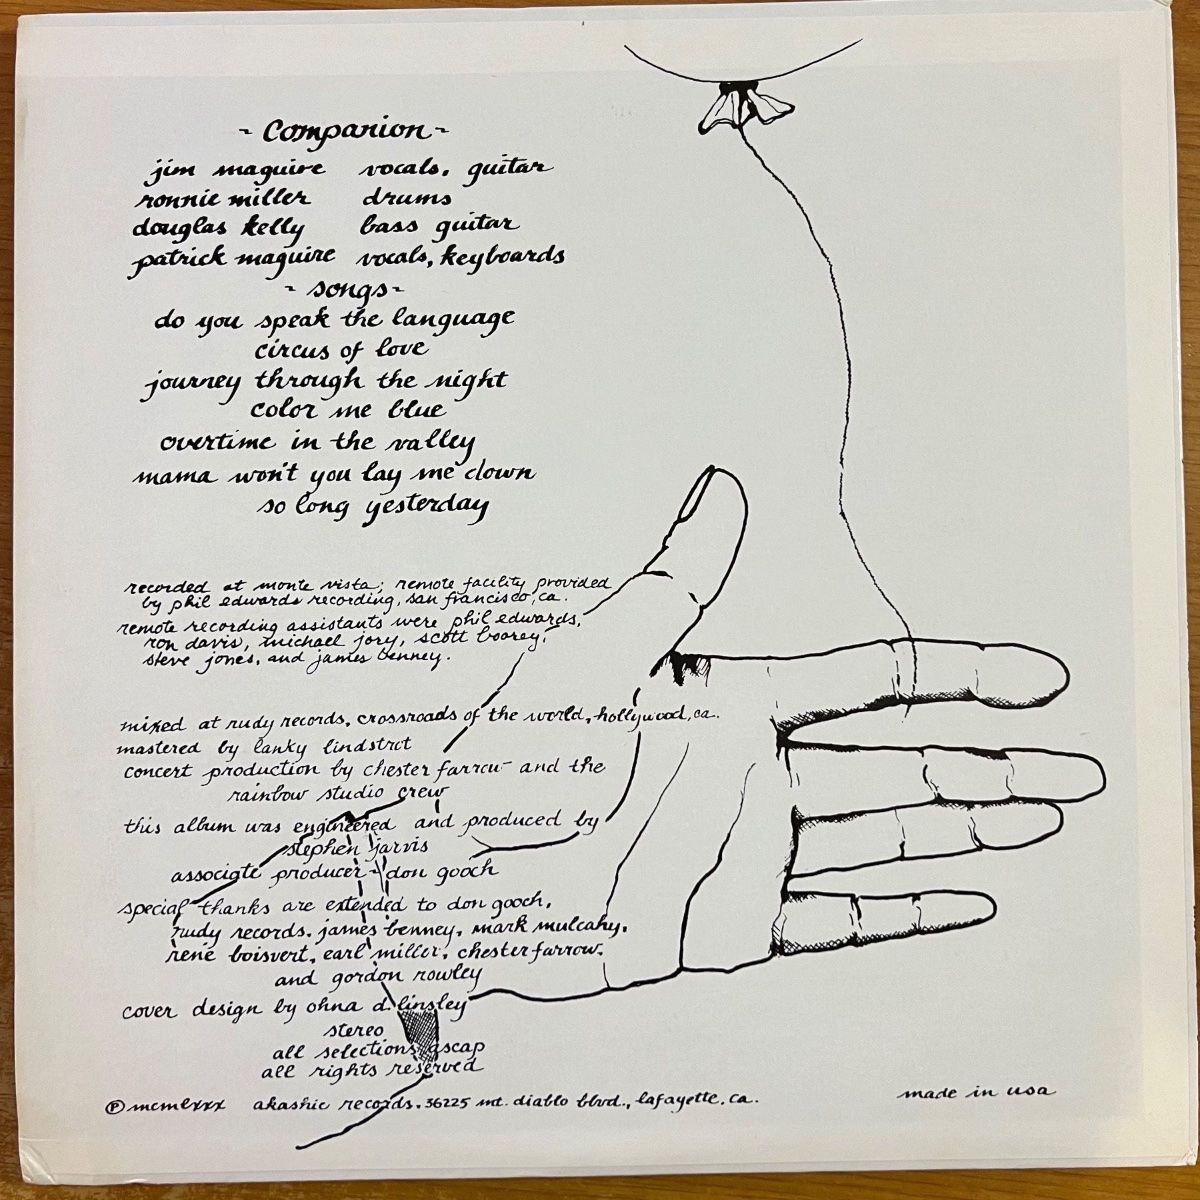 ~ Companion ~
jim maguire vocals, guitar
ronnie miller drums
douglas kelly bass guitar
patrick maguire vocals, keyboards
~ songs ~
do you speak the language
circus of love
journey through the night
color me blue
overtime in the valley
mama won't you lay me down
so long yesterday
recorded at monte vista; remote facility provided
by phil edwards recording, san francisco, ca.
remote recording assistants were phil edwards,
ron davis, michael jory, scott boorey,
steve jones, and james benney.
mixed at rudy records, crossroads of the world, hollywood, ca.
mastered by lanky lindstrot
concert production by chester farrow and the
rainbow studio crew
this album was engineered and produced by
stephen jarvis
associate producer - don gooch
special thanks are extended to don gooch,
rudy records, james benney, mark mulcahy,
rené boisvert, earl miller, chester farrow,
and gordon rowley
cover design by ohna d. linsley
stereo
all selections ascap
all rights reserved
℗ mcmlxxx akashic records. 36225 mt. diablo blvd., lafayette, ca.
made in usa